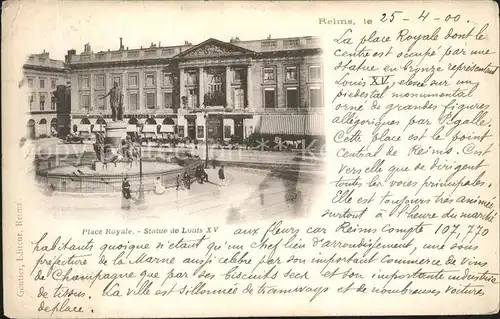 Reims, le 25-4-00.
La place Royale dont le
centre est occupé par une
statue en bronze représentant
Louis XV, élevé sur un
piédestal monumental
orné de grandes figures
allégoriques par Pigalle.
Cette place est le point
Central de Reims. C'est
vers elle que se dirigent
toutes les voies principales.
Elle est toujours très animée
surtout à l'heure du marché
Place Royale. - Statue de Louis XV
aux fleurs car Reims compte 107,770
habitants quoique n'étant qu'un chef lieu d'arrondissement, une sous
préfecture de la Marne aussi célèbre par son important commerce de vins
de Champagne que par ses biscuits secs et son importante industrie
de tissus. La ville est sillonnée de tramways et de nombreuses voitures
de place.
Gontier, Editeur, Reims